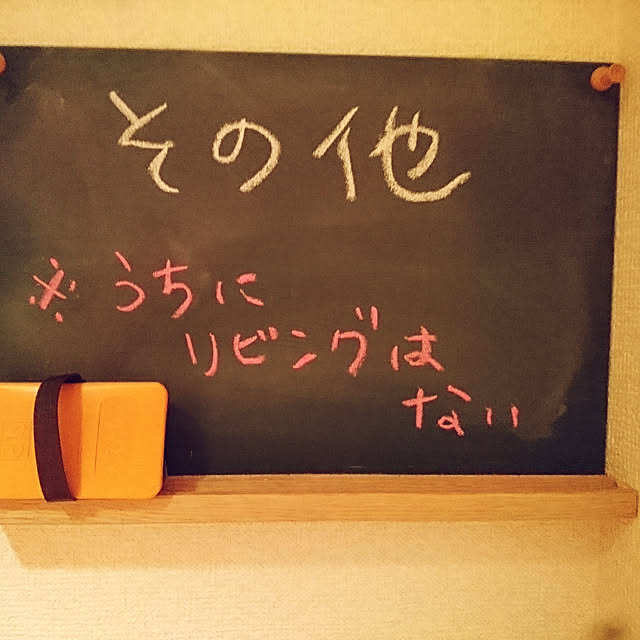 その他
※うちに
リビングは
ない